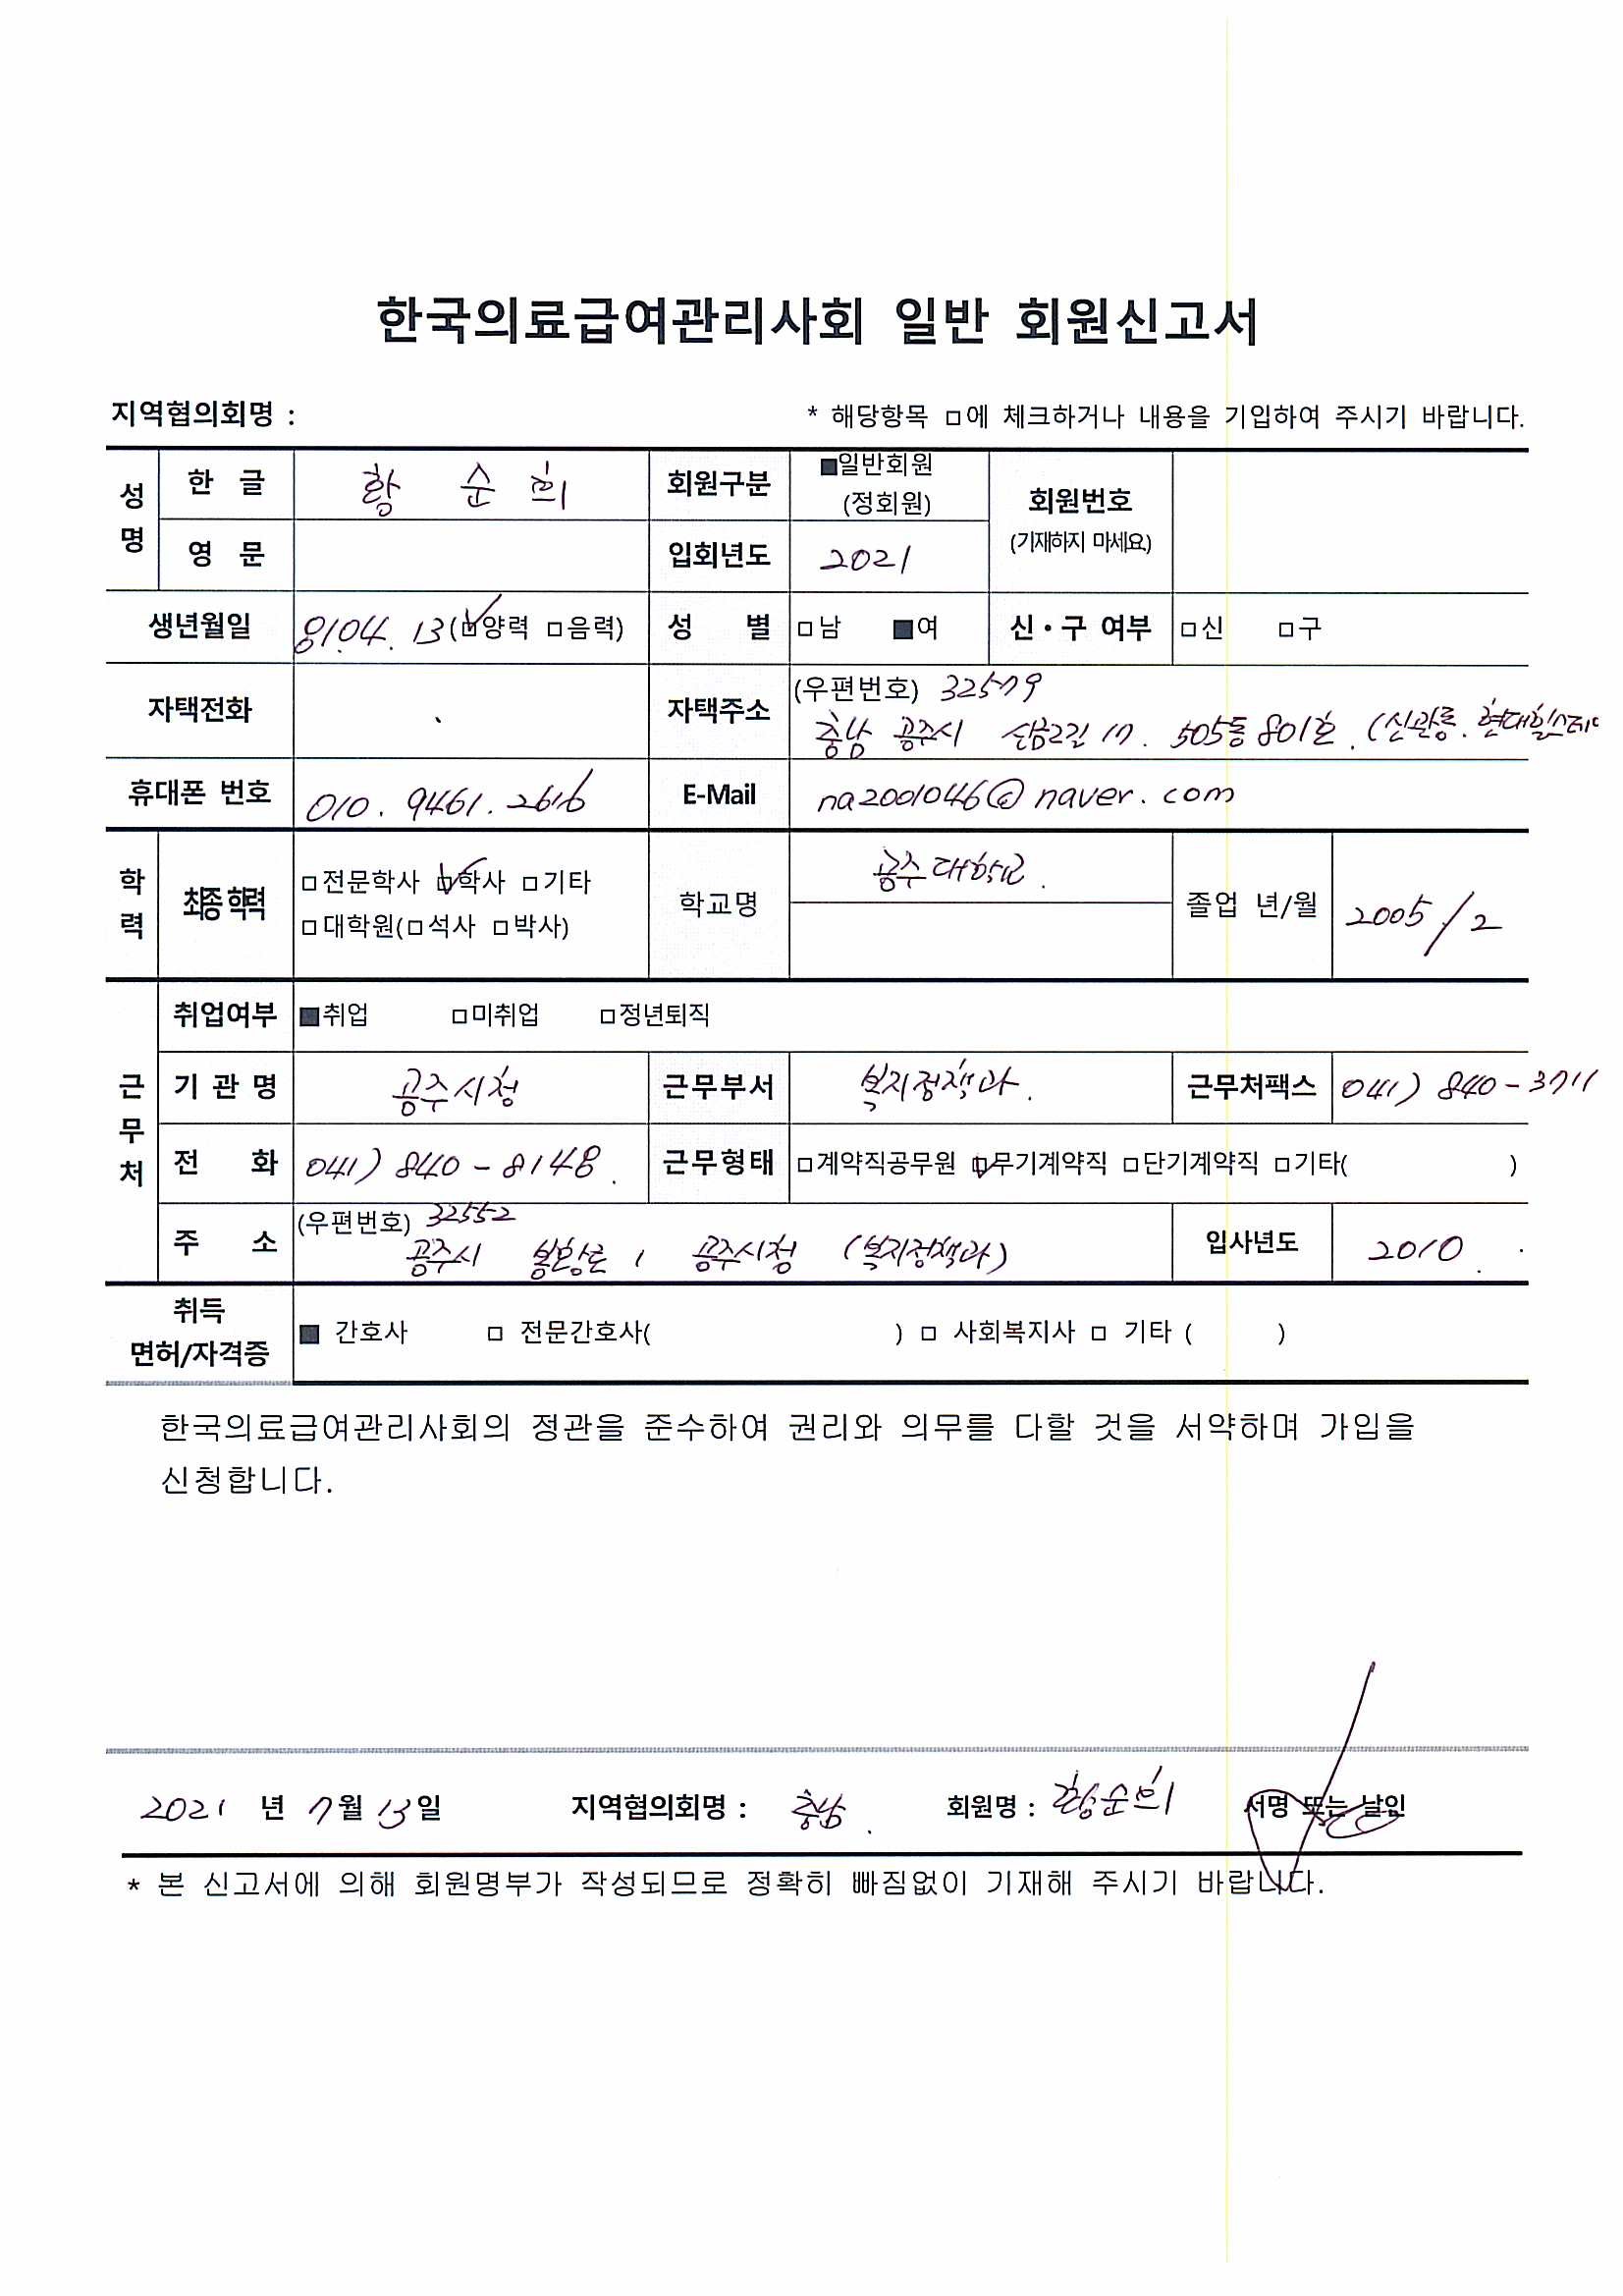 한국의료급여관리사회 일반 회원신고서
지역협의회명 :
* 해당항목 □에 체크하거나 내용을 기입하여 주시기 바랍니다.
성명 한 글 황 순 희 회원구분 ■일반회원 (정회원) 회원번호 (기재하지 마세요)
영 문 입회년도 2021
생년월일 81.04.13 (☑양력 □음력) 성 별 □남 ■여 신·구 여부 □신 □구
자택전화 자택주소 (우편번호) 32579
충남 공주시 신금2길 17. 505동 801호. (신관동. 현대힐스테
휴대폰 번호 010. 9461. 2616 E-Mail na2001046@naver.com
학력 최종학력 □전문학사 ☑학사 □기타 학교명 공주대학교. 졸업 년/월 2005/2
□대학원(□석사 □박사)
근무처 취업여부 ■취업 □미취업 □정년퇴직
기 관 명 공주시청 근무부서 복지정책과. 근무처팩스 041) 840-3711
전 화 041) 840-8148. 근무형태 □계약직공무원 ☑무기계약직 □단기계약직 □기타( )
주 소 (우편번호) 32552
공주시 봉황로 1 공주시청 (복지정책과) 입사년도 2010.
취득
면허/자격증 ■ 간호사 □ 전문간호사( ) □ 사회복지사 □ 기타 ( )
한국의료급여관리사회의 정관을 준수하여 권리와 의무를 다할 것을 서약하며 가입을
신청합니다.
2021 년 7월 13일 지역협의회명 : 충남. 회원명 : 황순희 서명 또는 날인
* 본 신고서에 의해 회원명부가 작성되므로 정확히 빠짐없이 기재해 주시기 바랍니다.